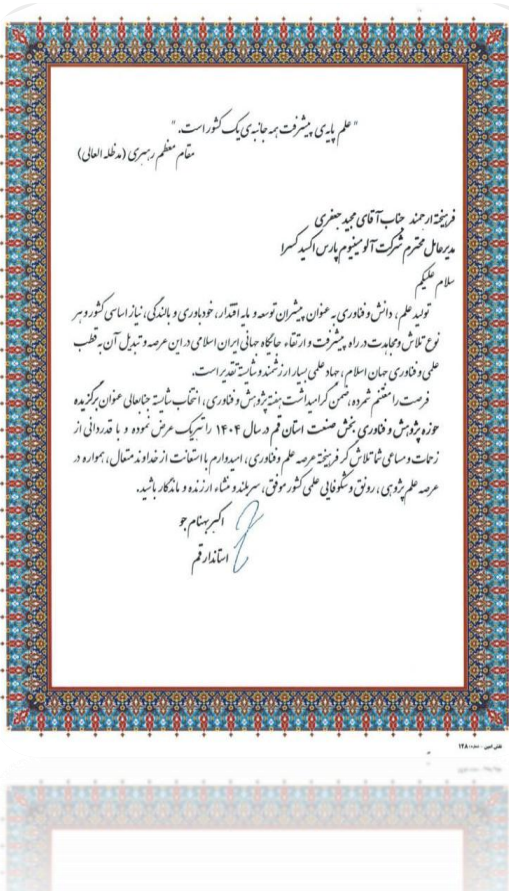 "علم پایه‌ی پیشرفت همه جانبه‌ی یک کشور است."
مقام معظم رهبری (مدظله العالی)
فرهیخته ارجمند جناب آقای مجید جعفری
مدیرعامل محترم شرکت آلومینیوم پارس اکسید کسرا
سلام علیکم
تولید علم، دانش و فناوری به عنوان پیشران توسعه و مایه اقتدار، خودباوری و بالندگی، نیاز اساسی کشور و هر
نوع تلاش و مجاهدت در راه پیشرفت و ارتقاء جایگاه جهانی ایران اسلامی در این عرصه و تبدیل آن به قطب
علمی و فناوری جهان اسلام، جهاد علمی بسیار ارزشمند و شایسته تقدیر است.
فرصت را مغتنم شمرده، ضمن گرامیداشت هفته پژوهش و فناوری، انتخاب شایسته جنابعالی عنوان برگزیده
حوزه پژوهش و فناوری بخش صنعت استان قم در سال ۱۴۰۴ را تبریک عرض نموده و با قدردانی از
زحمات و مساعی شما تلاش‌گر فرهیخته عرصه علم و فناوری، امیدوارم با استعانت از خداوند متعال، همواره در
عرصه علم پژوهی، رونق و شکوفایی علمی کشور موفق، سربلند و منشاء ارزنده و ماندگار باشید.
اکبر بهنام جو
استاندار قم
نقش آمین - شماره: ۱۴۸